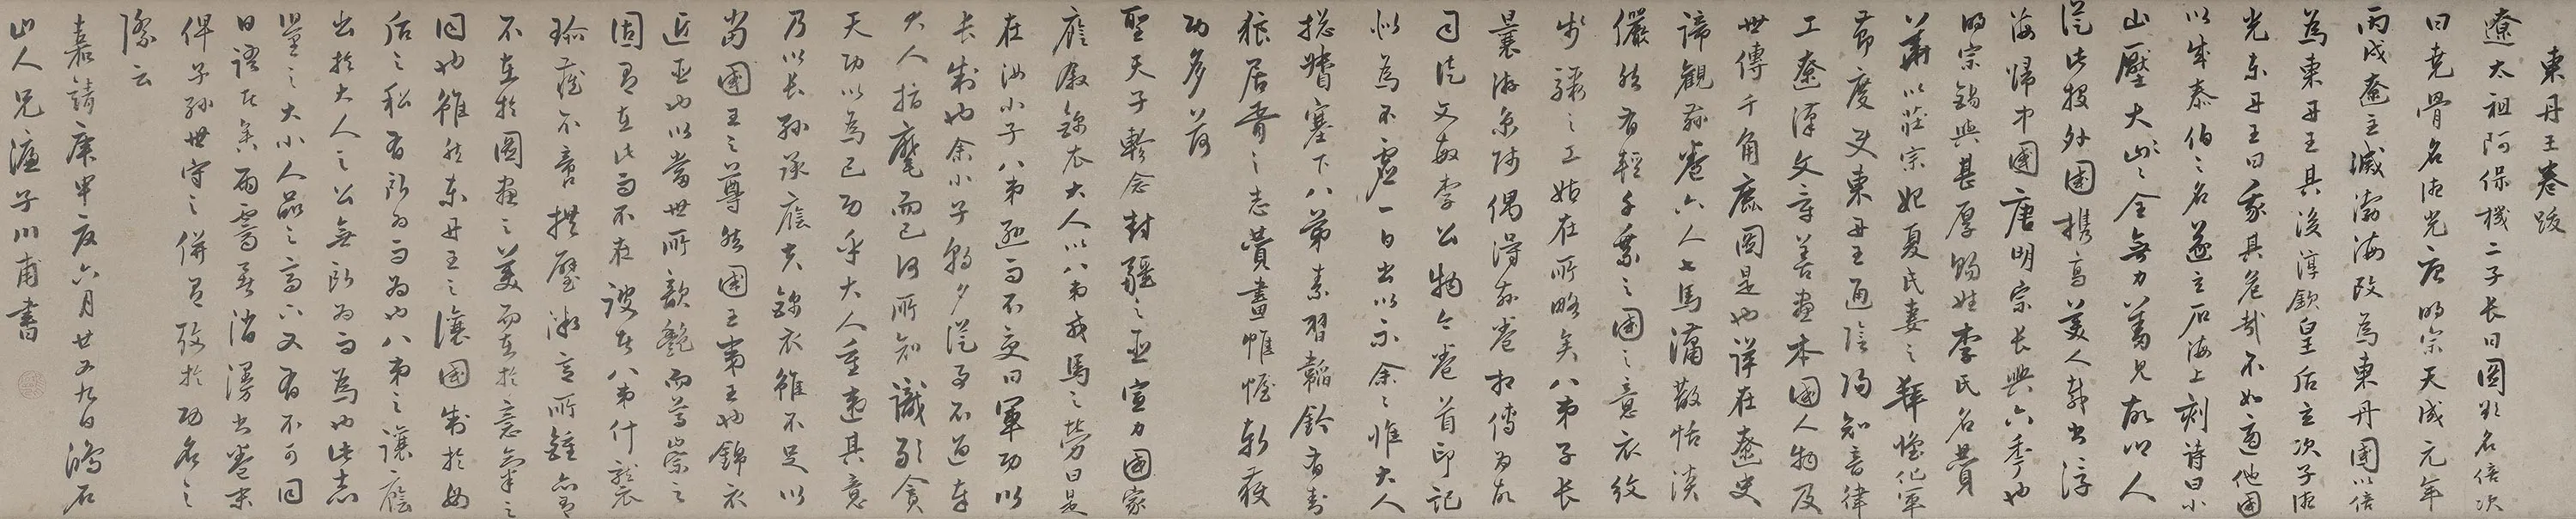 東丹王卷跋
遼太祖阿保機二子長曰圖欲名倍次
曰堯骨名德光唐明宗天成元年
丙戌遼主滅渤海改為東丹國以倍
為東丹王其後淳欽皇后立次子德
光東丹王曰我其危哉不如適他國
以成泰伯之名遂立石海上刻詩曰小
山壓大山大山全無力羞見故鄉人
從此投外國携高美人載書浮
海歸中國唐明宗長興六季也
明宗錫與甚厚賜姓李氏名贊
華以莊宗妃夏氏妻之拜懷化軍
節度使東丹王通陰陽知音律
工遼漢文章善畫本國人物及
世傳千角鹿圖是也詳在遼史
諦觀茲卷六人七馬瀟散恬淡
儼然有輕千乘之國之意衣紋
步驟之工姑在所略矣八弟子長
曩游京師偶得茲卷相傳為故
司徒文敏李公物今卷首印記
似為不虛一日出以示余余惟大人
總督塞下八弟素習韜鈐有封
狼居胥之志贊畫帷幄斬獲
功多荷
聖天子軫念封疆之臣宣力國家
應廕錦衣大人以八弟戎馬之勞曰是
在汝小子八弟遜而不受曰軍功以
長制也余小子朝夕從事不過奉
大人指麾而已何所知識敢貪
天功以為己功乎大人重違其意
乃以長孫承廕夫錦衣雖不足以
當國王之尊然國王夷王也錦衣
近臣也以當世所歆艷而尊崇之
固有在此而不在彼者八弟什襲
珍藏不啻拱璧湘言所鍾當
不在於圖畫之美而在於意氣之
同也雖然東丹王之讓國制於母
后之私有所為而為也八弟之讓廕
出於大人之公無所為而為也此志
量之大小人品之高下又有不可同
日語者矣雨窗無事漫書卷末
俾子孫世守之併有效於功名之
際云
嘉靖庚申夏六月廿又九日鴻石
山人兄濂子川甫書